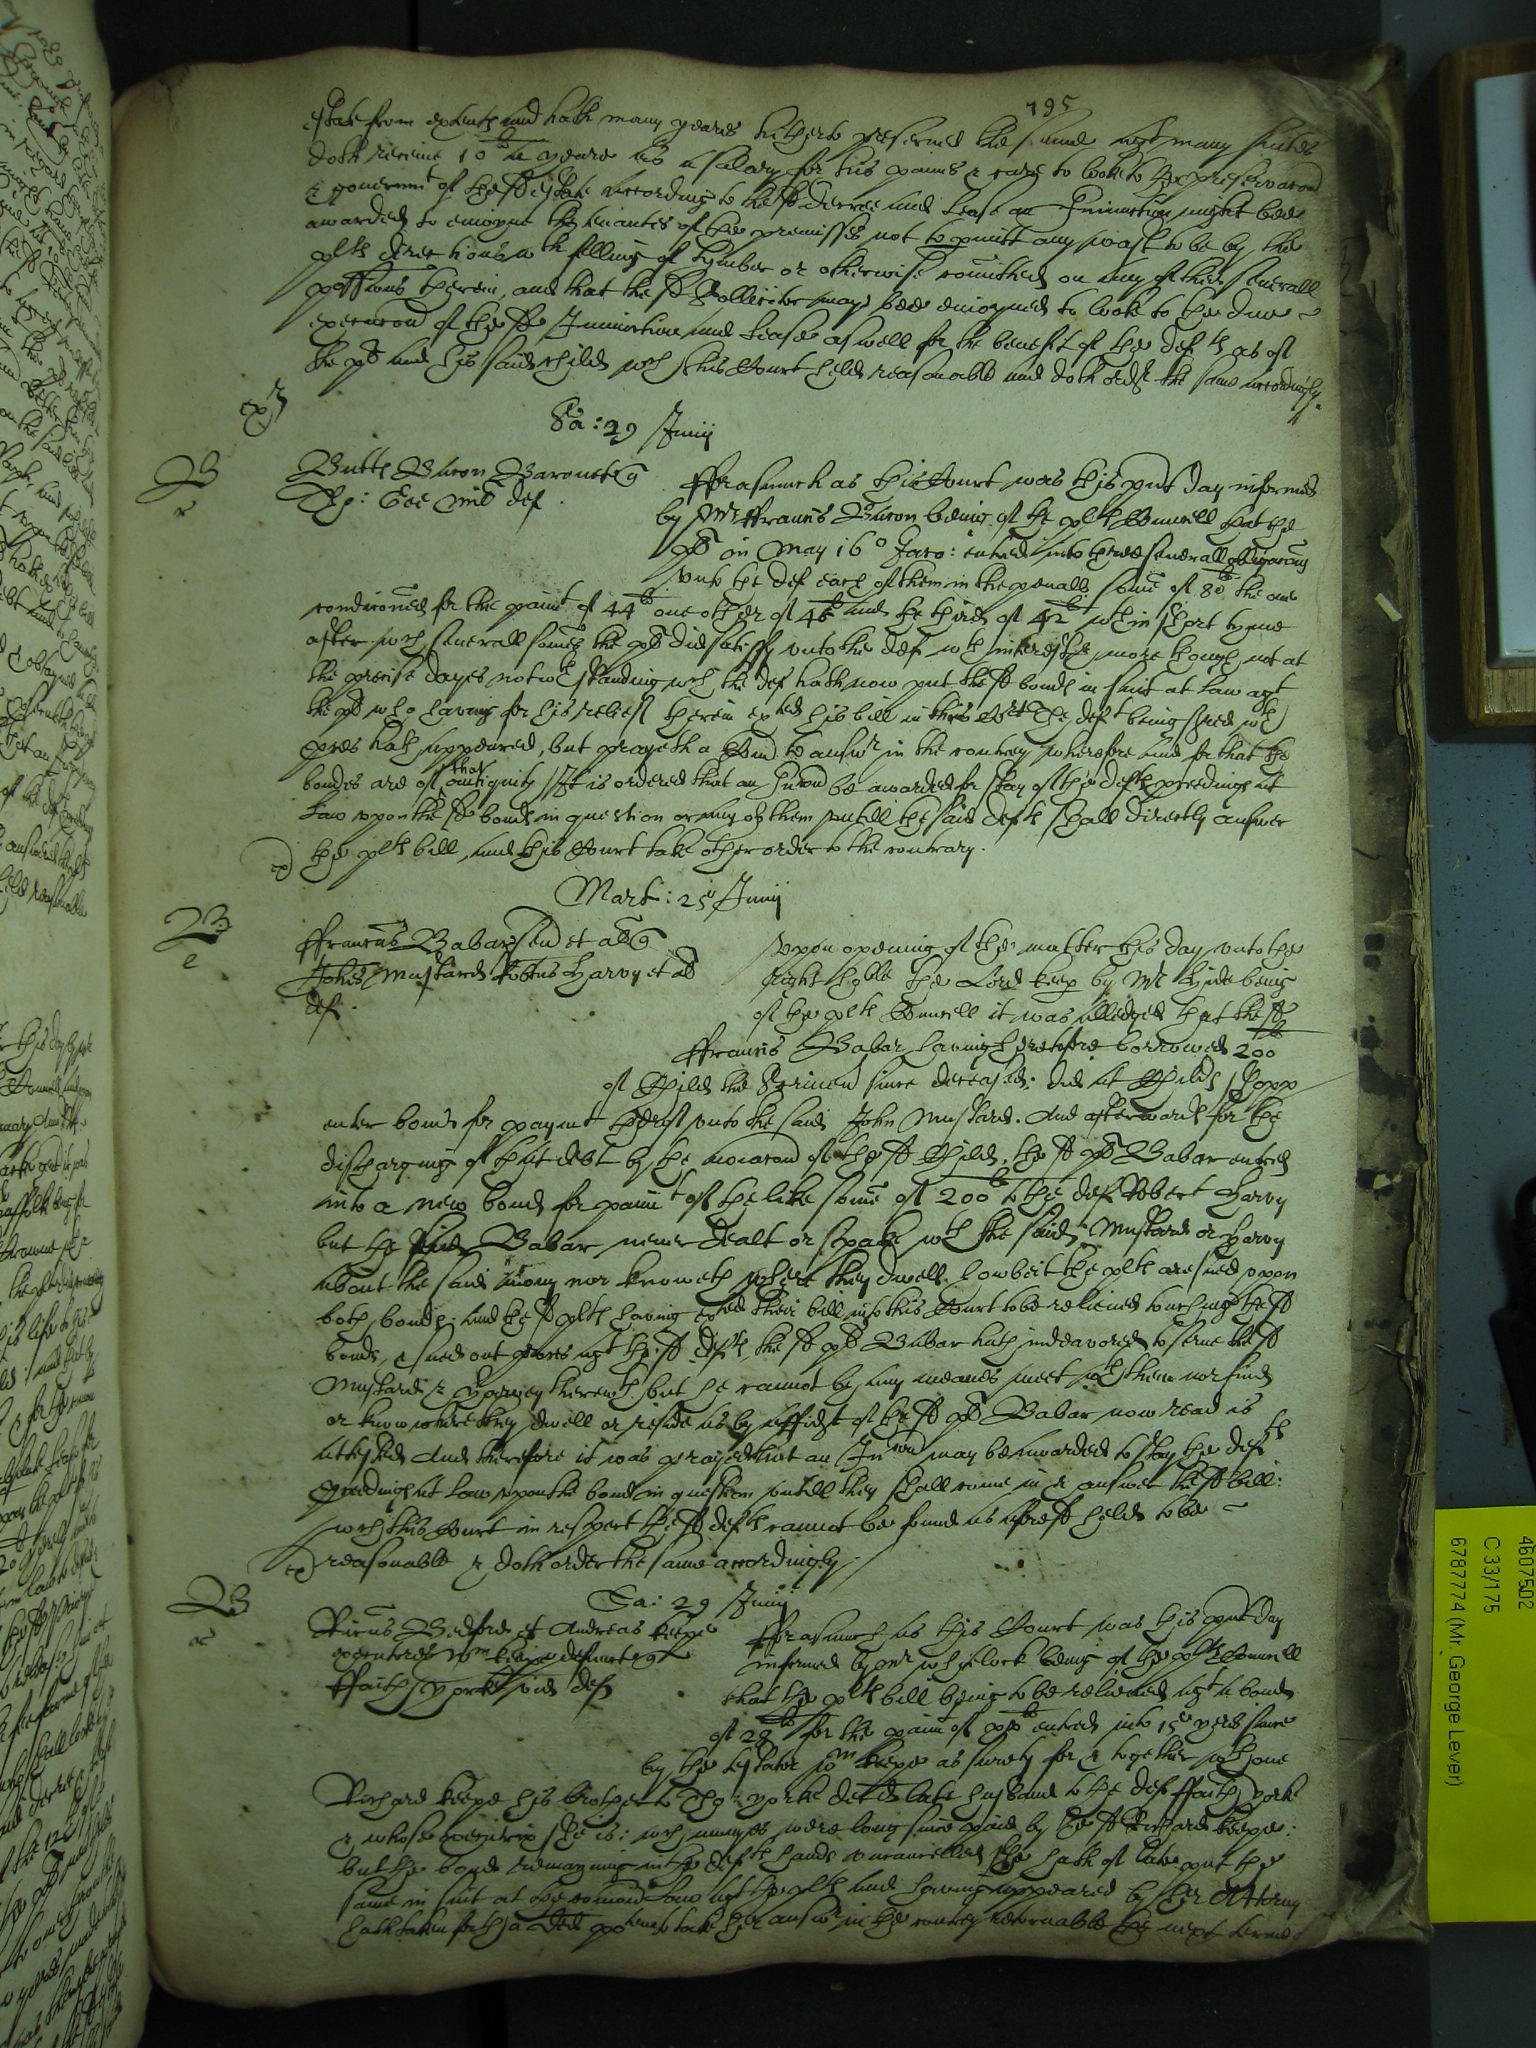 195
estate from extents and hath many yeares hitherto preserued the same agt many suites
doth receiue 10li a yeare as a salary for his paines & care to looke to the preseruacon
& gouermt of the sd estate according to the sd decree and lease an Iniunction might bee
awarded to enioyne the tenantes of the premisses not to pmitt any wast to be by the
plts direccions wth felling of tymber or otherwise comitted on any of their seuerall
possions therein, and that the sd Sollicitor may bee enioyned to looke to the due
execucon of the sd Iniunction and lease aswell for the benefit of the defts as of
the pl and his said child wch this Court held reasonable and doth order the same accordingly.
ex
Sa: 29 Junij
B
Butts Bacon Baronet q
Tho: mil def.
Forasmuch as this Court was this pnt day informed
by Mr Francis Bacon being of the plts Councell that the
pl in May 16o Jaco: entred into three seuerall obligacons
vnto the def each of them in the penall some of 80li the one
condiconed for the paimt of 44li one other of 46li and the third of 42li wthin short tyme
after wch seuerall somes the pl did satisfy vnto the def wth interest & more though not at
the precise dayes notwthstanding wch the def hath now put the sd bonds in suit at law agt
the pl who having for his releif therein exhted his bill in this Court the deft being served wth
proces hath appeared, but prayeth a Comd to answr in the contrey wherefore and for that the
bondes are of that antiquity It is ordered that an Iniuncon be awarded for stay of the defts pceedings at
law vpon the sd bonds in question or any of them vntill the said defts shall directly answer
the plts bill, and this Court take other order to the contrary.
ex
Mart: 25o Junij
B
e
Franciscus Babar sen et al q
Johes Mustard Robtus Harvy et al
def.
Vpon opening of the matter this day vnto the
Right Hoble the Lord Keep by Mr Hide being
of the plts Councell it was alledged that the sd
Francis Babar having heretofore borrowed 200li
of Child the Scriuenr since deceased, did at Childs shopp
enter bond for paymt thereof vnto the said John Mustard. And afterwards for the
discharging of that debt by the of the sd Child, the sd pl Babar entred
into a new bond for paimt of the like some of 200li to the def Robert Harvy
but the said Babar neuer dealt or spake wth the said Mustard or Harvy
about the said mony nor knoweth where they dwell. howbeit the plts are sued vpon
both bonds. And the sd plts having exted their bill into this Court to be releiued touching the sd
bonds, & sued out proces agt the sd defts, the sd pl Babar hath indeavored to serue the sd
Mustard & Harvey therewth but he cannot by any meanes meet wth them nor find
or know where they dwell or reside as by affidt of the sd pl Babar now read is
attested And therefore it was prayed that an Iniuncon may be awarded to stay the defts
pceedings at law vpon the bonds in question vntill they shall come in & answer the sd bill:
wch this Court in respect the sd defts cannot be found as aforesd held to be
ex reasonable & doth order the same accordingly.
B
Sa: 29 Junij
Ricus Bedford et Andreas Keepe
executores Wm Keepe defunct q
Faith Yorke vid def
Forasmuch as this Court was this pnt day
informed by Mr Whitlock being of the plts Councell
that the plts bill being to be releiued agt a bond
of 28li for the paimt of entred into 15e yeres since
by the testator Wm Keepe as surety for & together wth one
Richard Keepe his brother to Tho: Yorke deced late husband to the def Faith Yorke
& whose executrix she is: wch monyes were long since paid by the sd Richard Keepe:
but the bond remayning in the defts hands vncancelled she hath of late put the
same in suit at the comon law agt the plts and having appeared by her Attorny
hath taken forth a Ded potem to take her answr in the contrey retornable the next terme
4607502
C 33/175
6787774 (Mr. George Lever)